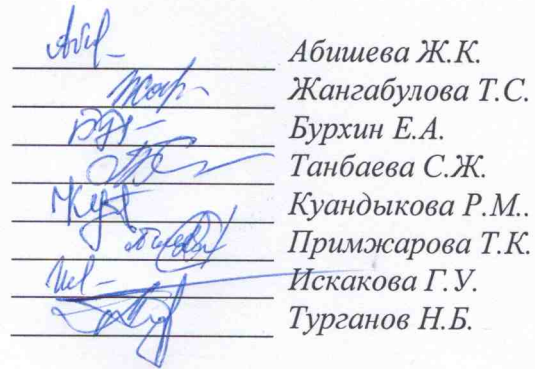 Абишева Ж.К.
Жангабулова Т.С.
Бурхин Е.А.
Танбаева С.Ж.
Куандыкова Р.М..
Примжарова Т.К.
Искакова Г.У.
Турганов Н.Б.